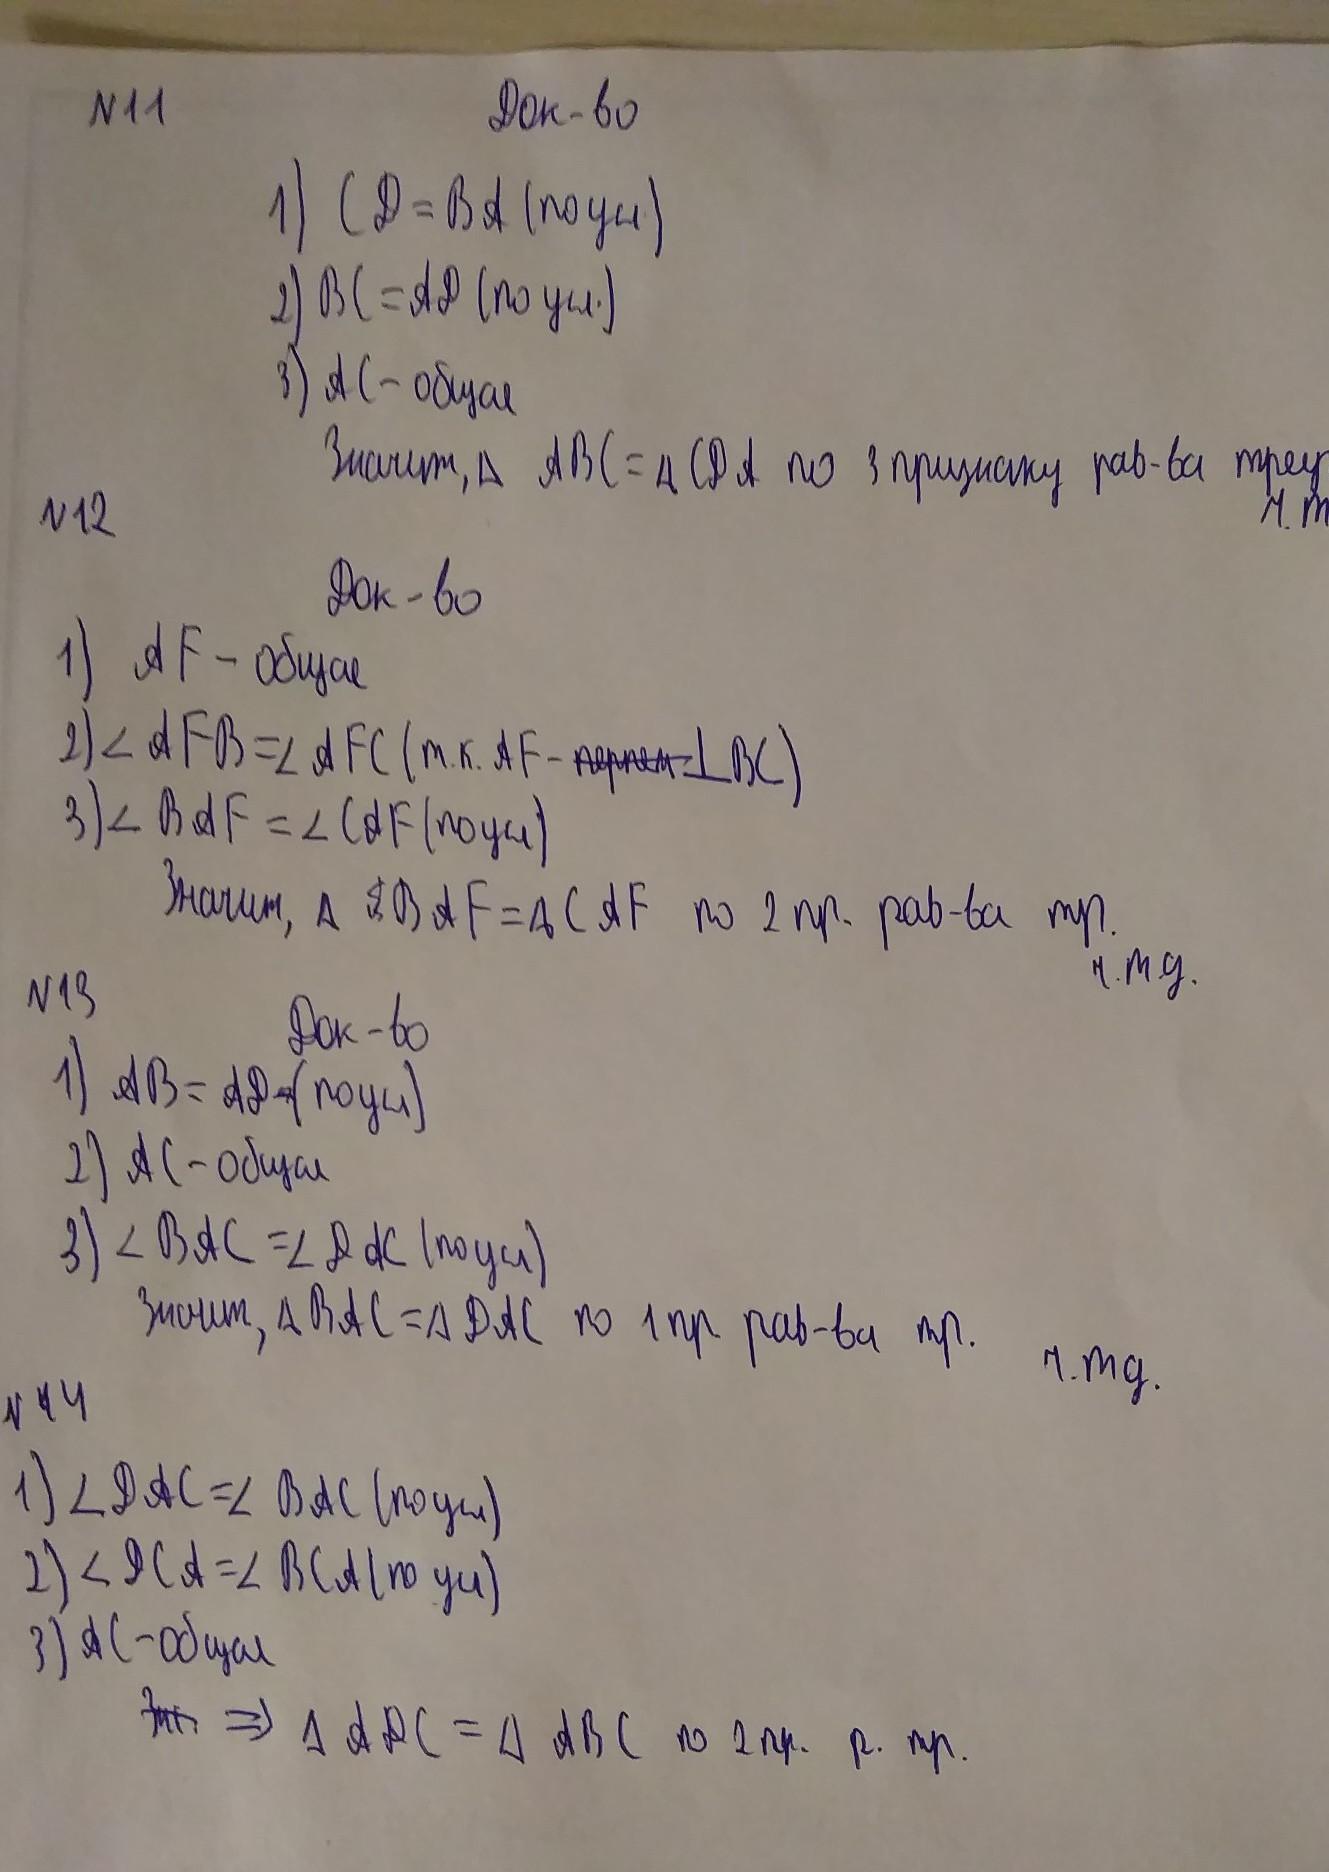 N11 Док-во
1) CD = BA (по усл.)
2) BC = AD (по усл.)
3) AC - общая
Значит, Δ ABC = Δ CDA по 3 признаку рав-ва треу
ч.т
N12
Док-во
1) AF - общая
2) ∠ AFB = ∠ AFC (т.к. AF - ⊥ BC)
3) ∠ BAF = ∠ CAF (по усл)
Значит, Δ BAF = Δ CAF по 2 пр. рав-ва тр.
ч.тд.
N13
Док-во
1) AB = AD (по усл)
2) AC - общая
3) ∠ BAC = ∠ DAC (по усл)
Значит, Δ BAC = Δ DAC по 1 пр рав-ва тр.
ч.тд.
N14
1) ∠ DAC = ∠ BAC (по усл)
2) ∠ DCA = ∠ BCA (по усл)
3) AC - общая
⇒ Δ ADC = Δ ABC по 2 пр. р. тр.